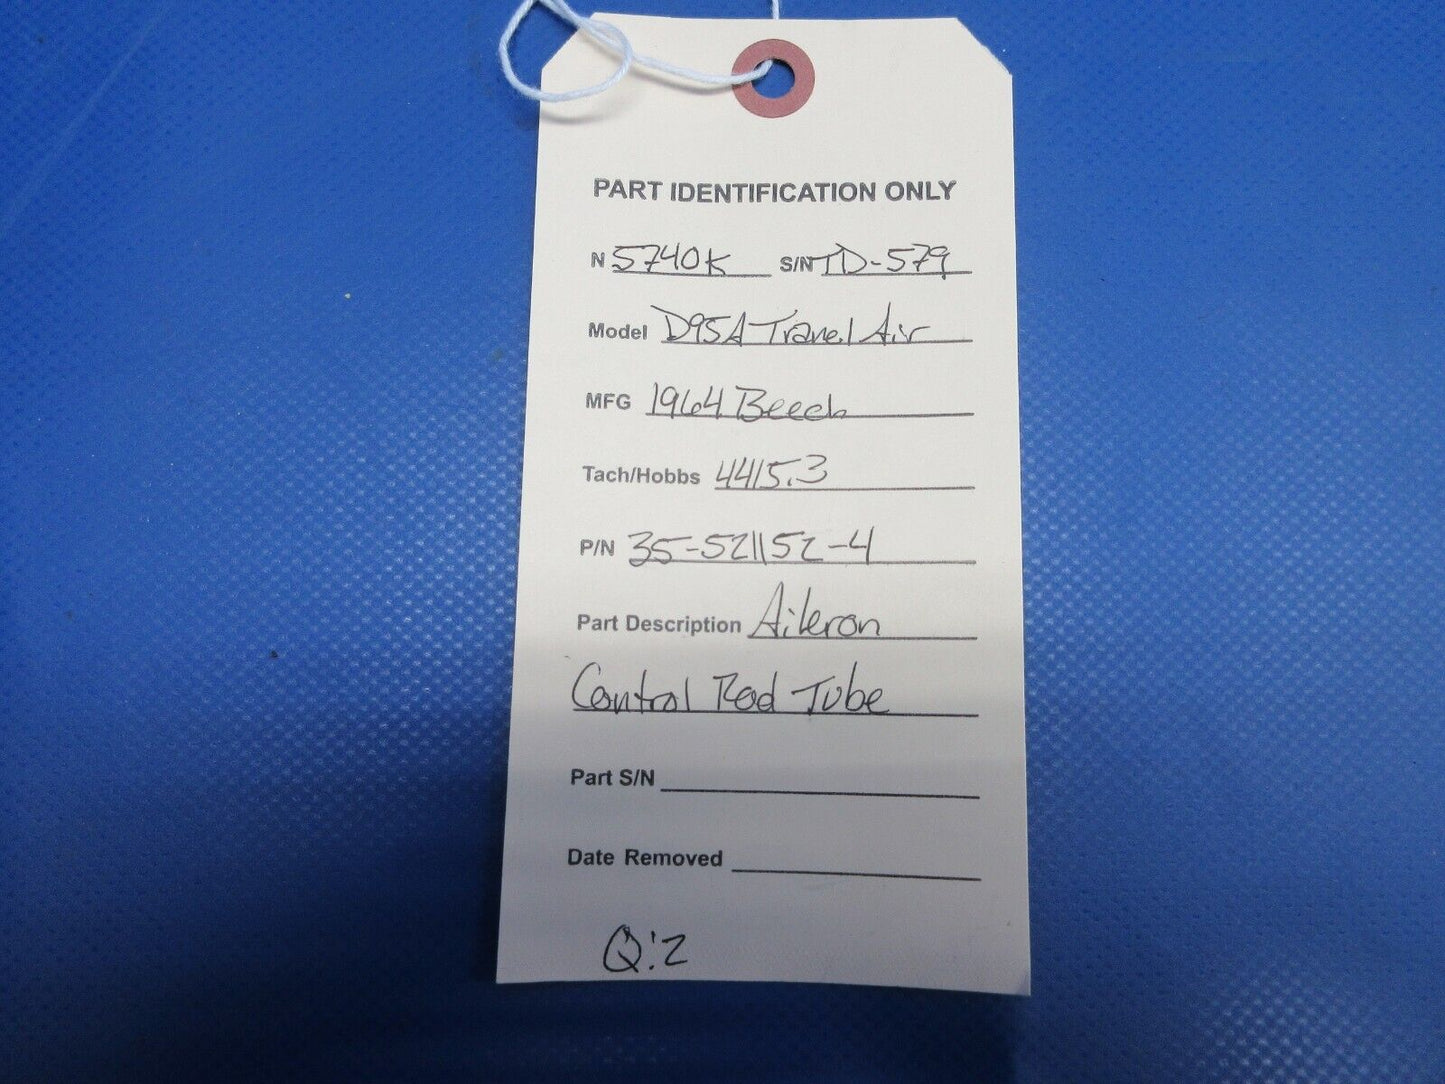 PART IDENTIFICATION ONLY
N 5740K S/N TD-579
Model D95A Travel Air
MFG 1964 Beech
Tach/Hobbs 4415.3
P/N 35-521152-4
Part Description Aileron
Control Rod Tube
Part S/N
Date Removed
Q:2